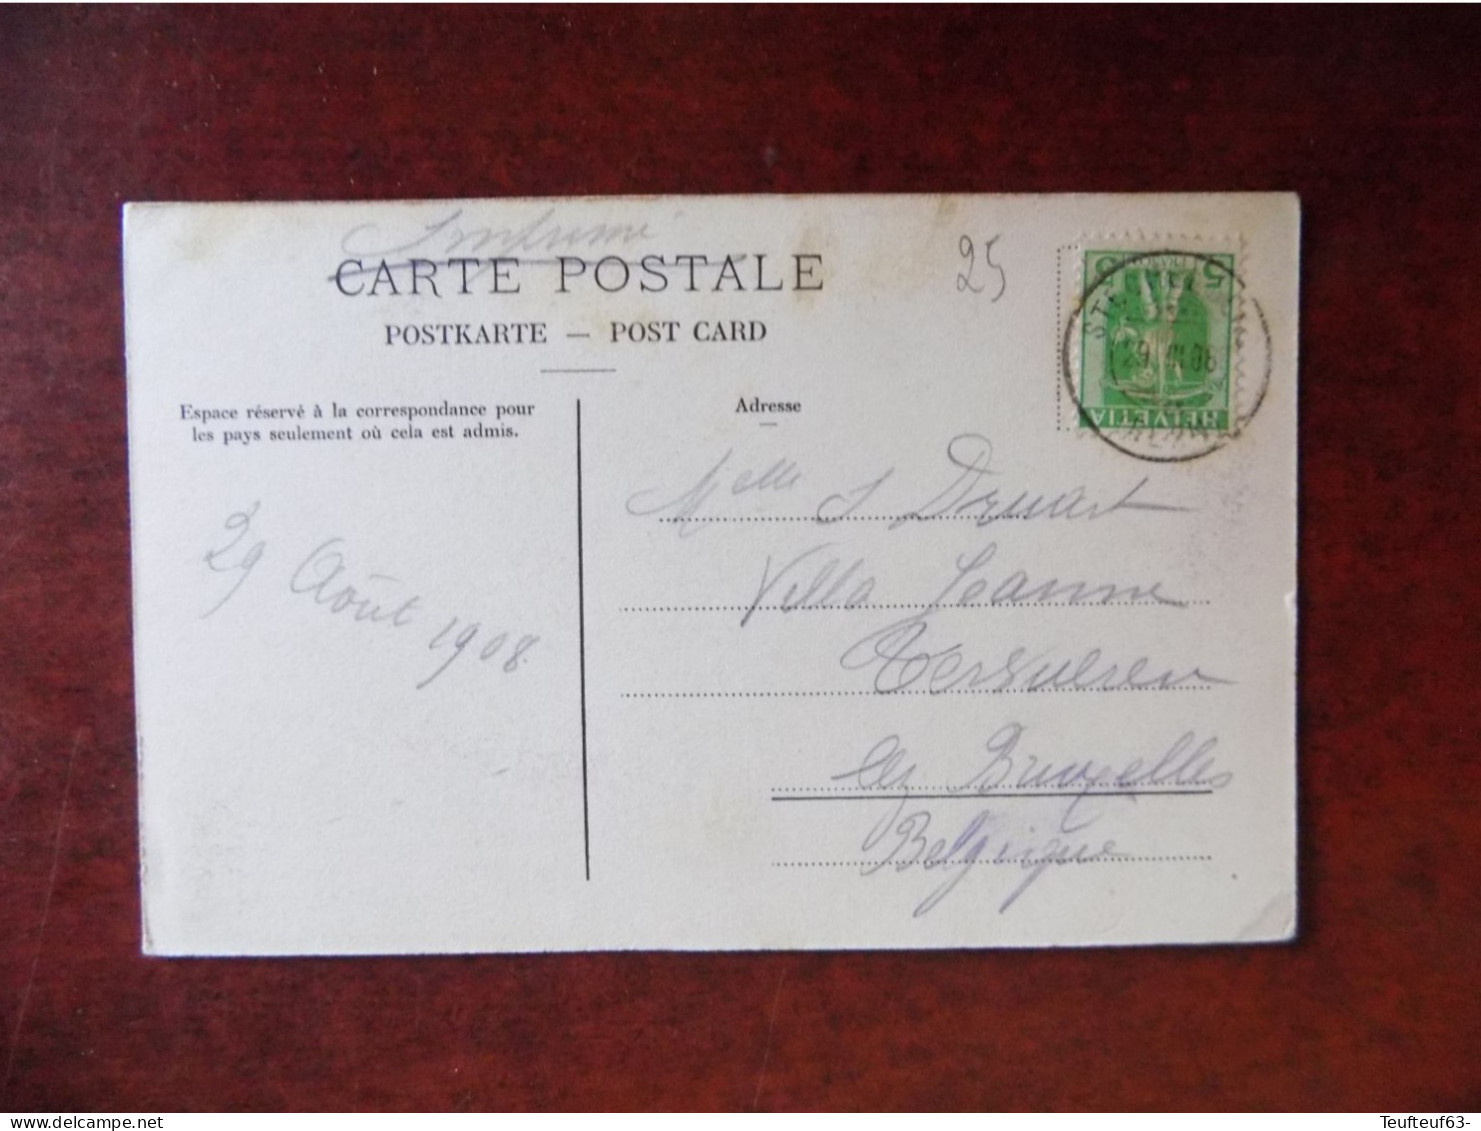 Imprimé
CARTE POSTALE
POSTKARTE — POST CARD
25
5
HELVETIA
29 VIII 08
Espace réservé à la correspondance pour
les pays seulement où cela est admis.
Adresse
29 Août 1908.
Melle S Druart
Villa Jeanne
Tervueren
lez Bruxelles
Belgique
Teufteuf63-